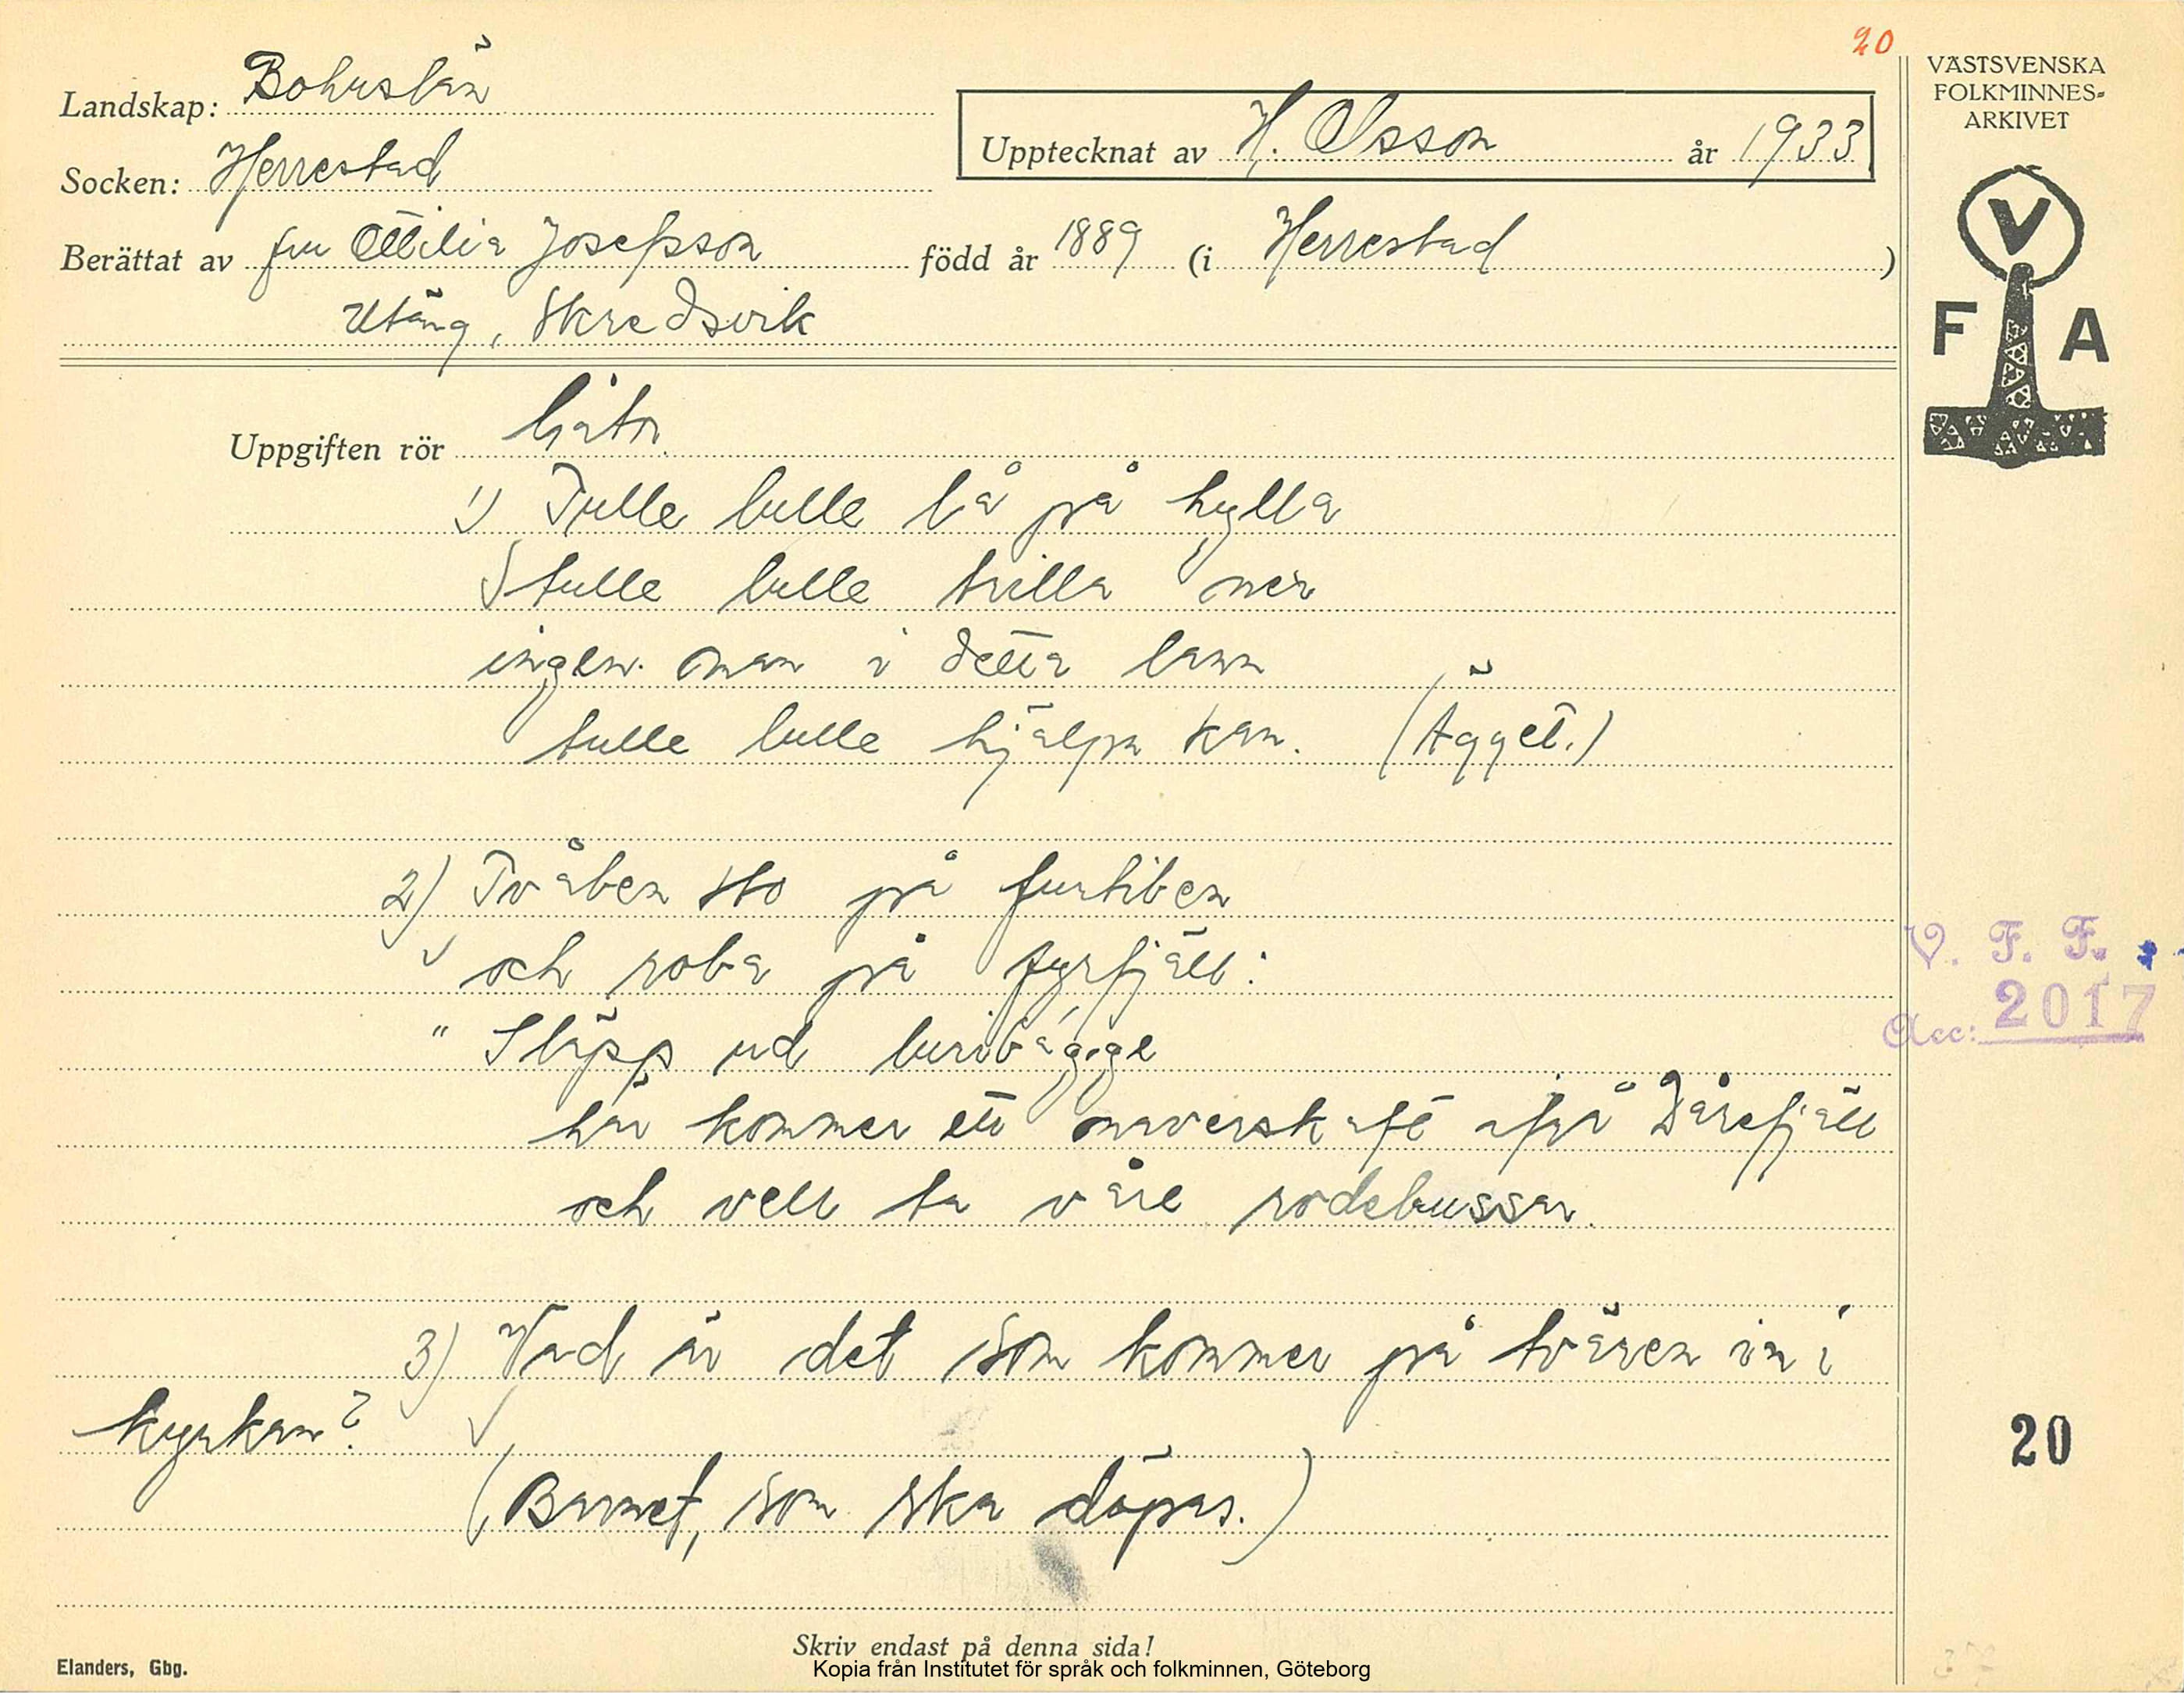 20
VÄSTSVENSKA
FOLKMINNES-
ARKIVET
Landskap: Bohuslän
Upptecknat av H. Olsson år 1933
Socken: Herrestad
Berättat av fru Ottilia Josefsson född år 1889 (i Herrestad)
Utäng, Skredsvik
V
F A
Uppgiften rör Gåtor
1) Tulle lulle lå på hylla
tulle lulle trilla ner
ingen man i detta lann
tulle lulle hjälpa kan. (Ägget.)
2) Tvåben sto på furtiben
och roba på fyrfjäll:
"Släpp ud
här kommer ett naverskaft ifrå Dårefjäll
och vell ta våre rodebussar.
V. F. F.
Acc: 2017
3) Vad är det som kommer på tvären in i
kyrkan?
(Barnet, som ska döpas.)
20
Skriv endast på denna sida!
Elanders, Gbg.
Kopia från Institutet för språk och folkminnen, Göteborg